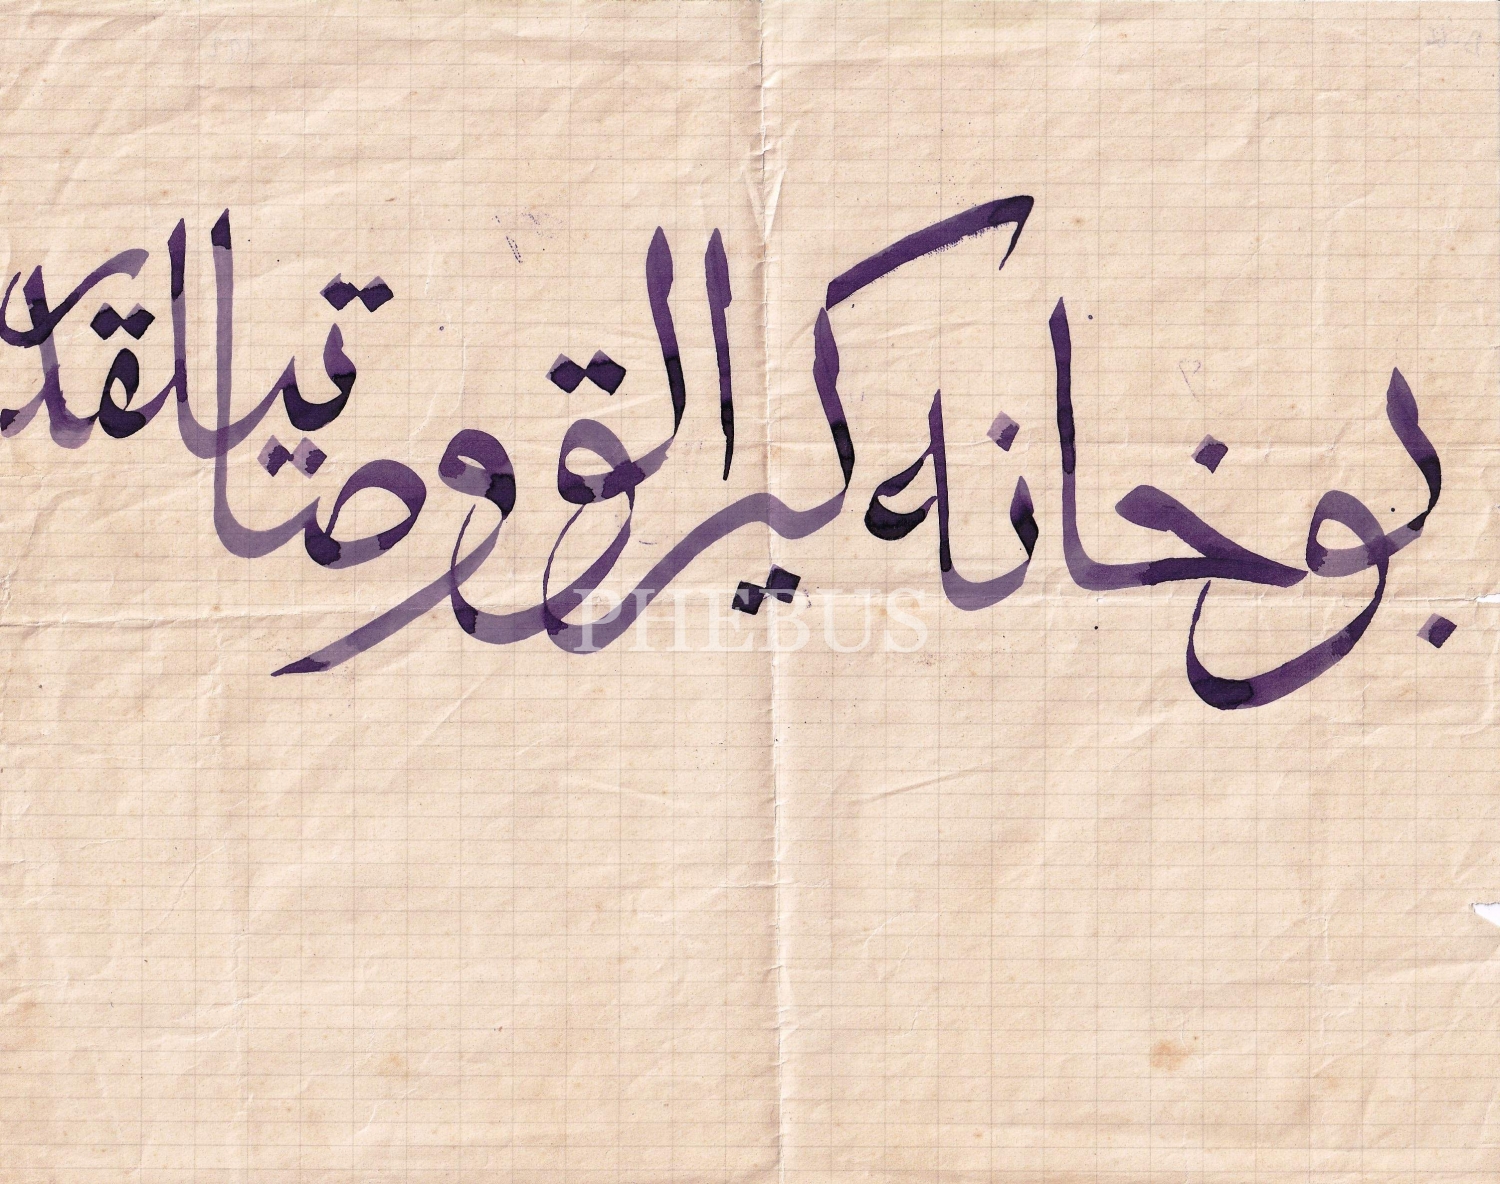 بو خانه كيرالق و صاتيلقدر
PHEBUS